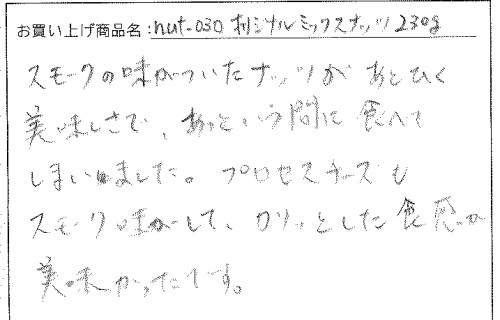 お買い上げ商品名:nut-030 オリジナルミックスナッツ230g
スモークの味がついたナッツが あとひく
美味しさで、あっという間に食べて
しまいました。プロセスチーズも
スモーク味がして、カリッとした食感が
美味かったです。